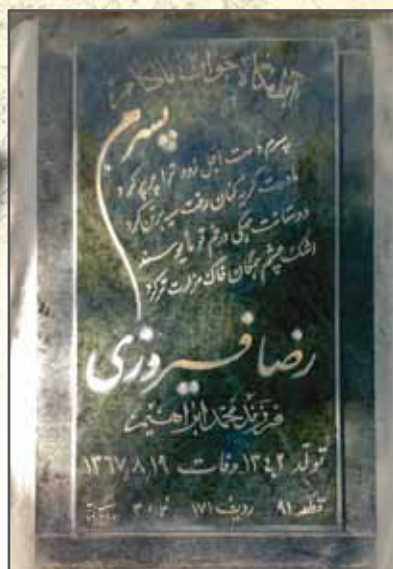 آرامگاه جوان ناکام
پسرم
پسرم دست اجل زود ترا پرپر کرد
مادرت گریه کنان رخت سیه بر تن کرد
دوستانت همگی در غم تو مأیوسند
اشک چشم همگان خاک مزارت تر کرد
رضا فیروزی
فرزند محمد ابراهیم
تولد ۱۳۴۲ وفات ۱۳۶۷،۸،۱۹
قطعه ۹۱ ردیف ۱۷۱ شماره ۳